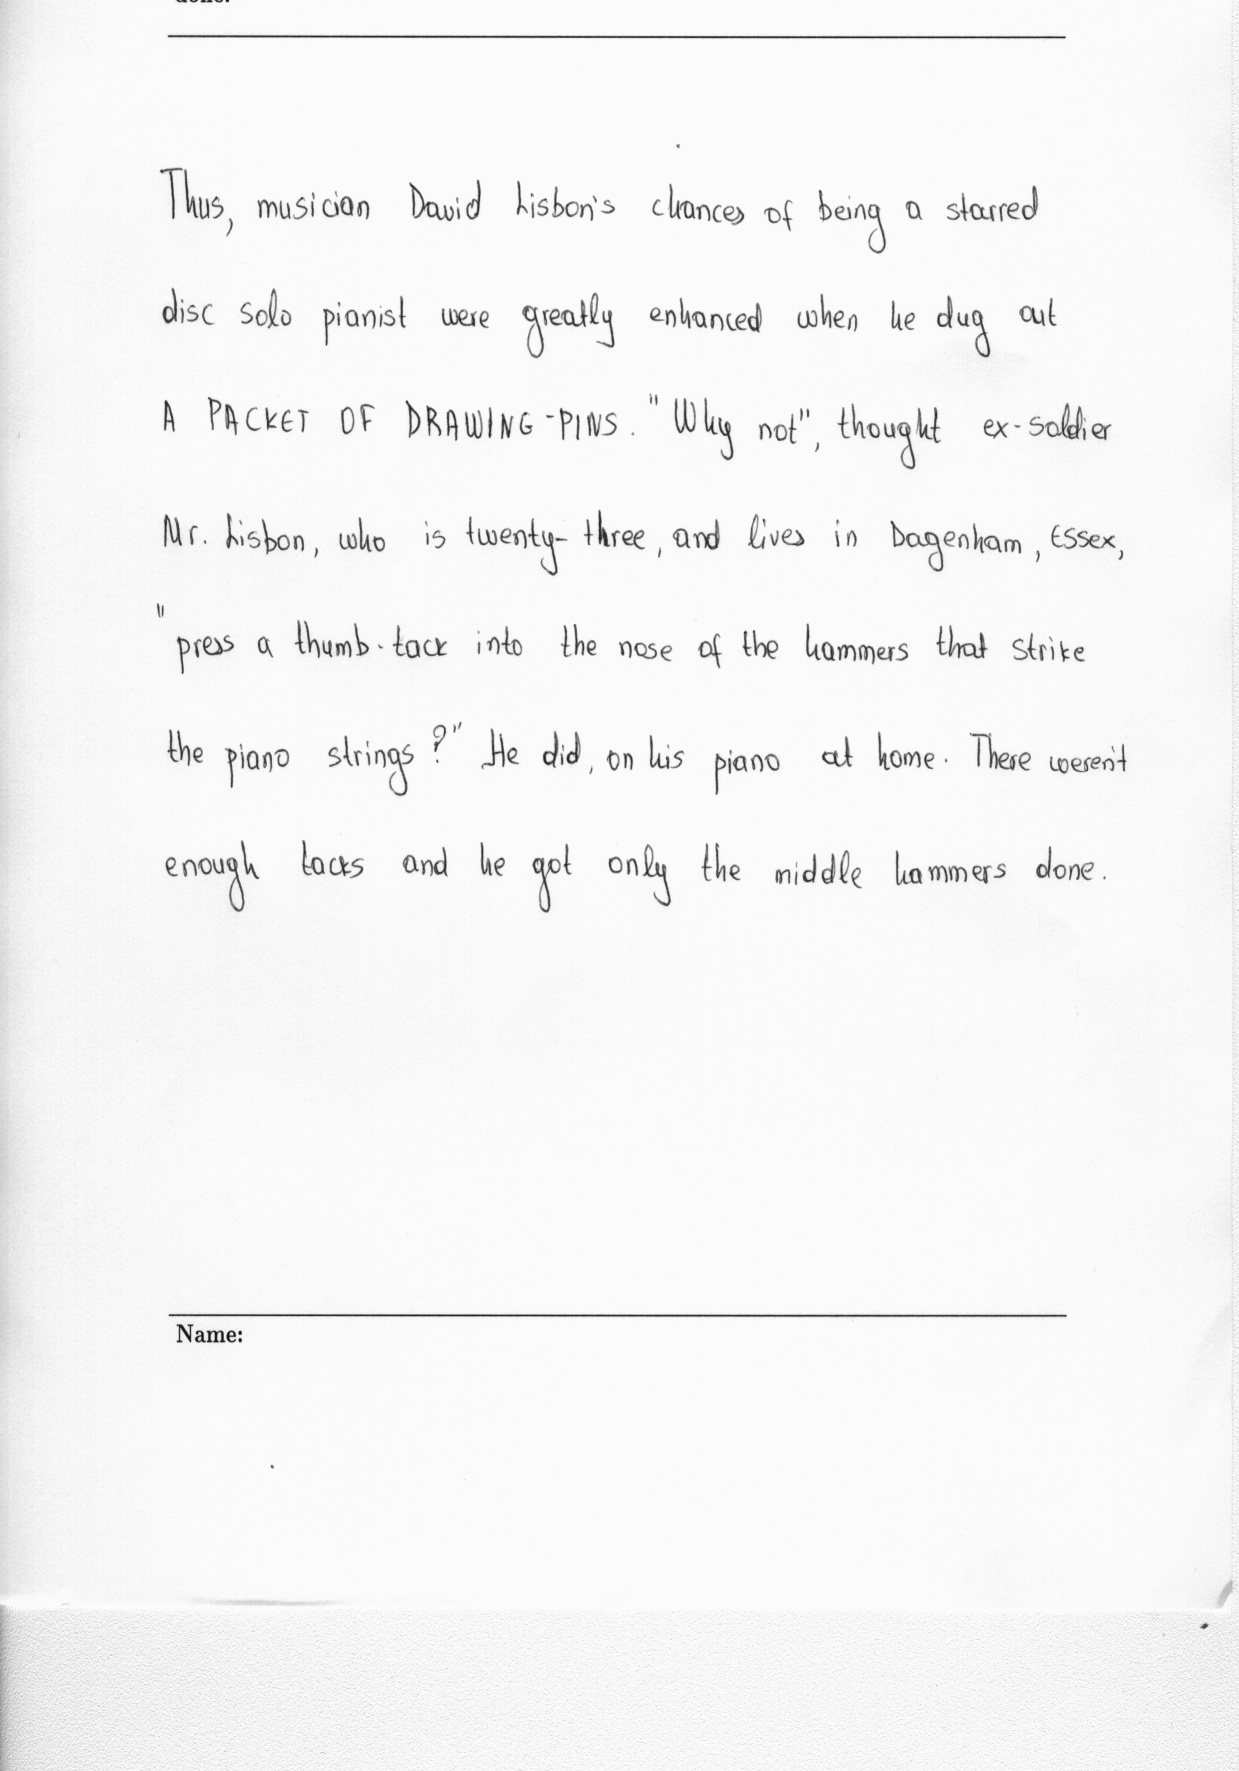 done.
Thus, musician David Lisbon's chances of being a starred
disc solo pianist were greatly enhanced when he dug out
A PACKET OF DRAWING-PINS. "Why not", thought ex-soldier
Mr. Lisbon, who is twenty-three, and lives in Dagenham, Essex,
"press a thumb-tack into the nose of the hammers that strike
the piano strings?" He did, on his piano at home. There weren't
enough tacks and he got only the middle hammers done.
Name: